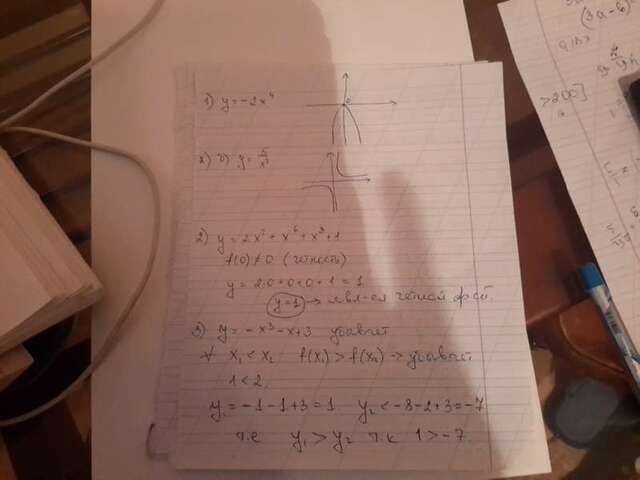 1) y = -2x⁴
2) б) y = 5/x³
2) y = 2x⁷ + x⁶ + x³ + 1
f(0) ≠ 0 (чётность)
y = 2·0+0+0+1 = 1
y=1 → явл-ся чётной ф-ей.
3) y = -x³-x+3 убывает
∀ x₁ < x₂ f(x₁) > f(x₂) → убывает
1 < 2.
y₁ = -1-1+3 = 1. y₂ = -8-2+3 = -7
т.е y₁ > y₂ т.к 1 > -7
(3a-b)
>200]